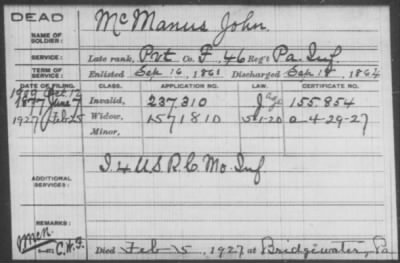 DEAD
McManus John.
NAME OF SOLDIER:
SERVICE: Late rank, Pvt Co. F, 46 Reg't Pa. Inf.
TERM OF SERVICE: Enlisted Sep. 16, 1861 Discharged Sep. 18, 1864
DATE OF FILING. CLASS. APPLICATION NO. LAW. CERTIFICATE NO.
1909 Oct. 12
1877 June 7 Invalid, 237.310 155.854
1927 Feb-25 Widow, 1571810 5-1-20 a-4-29-27
Minor,
ADDITIONAL SERVICES: I. 4 U.S.R.C. Mo. Inf
REMARKS:
Died Feb-5, 1927 at Bridgewater, Pa